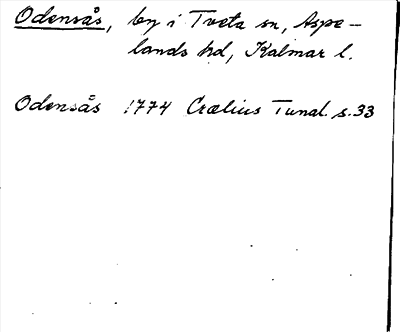 Odensås, by i Tveta sn, Aspe-
lands hd, Kalmar l.
Odensås 1774 Crælius Tunal. s. 33